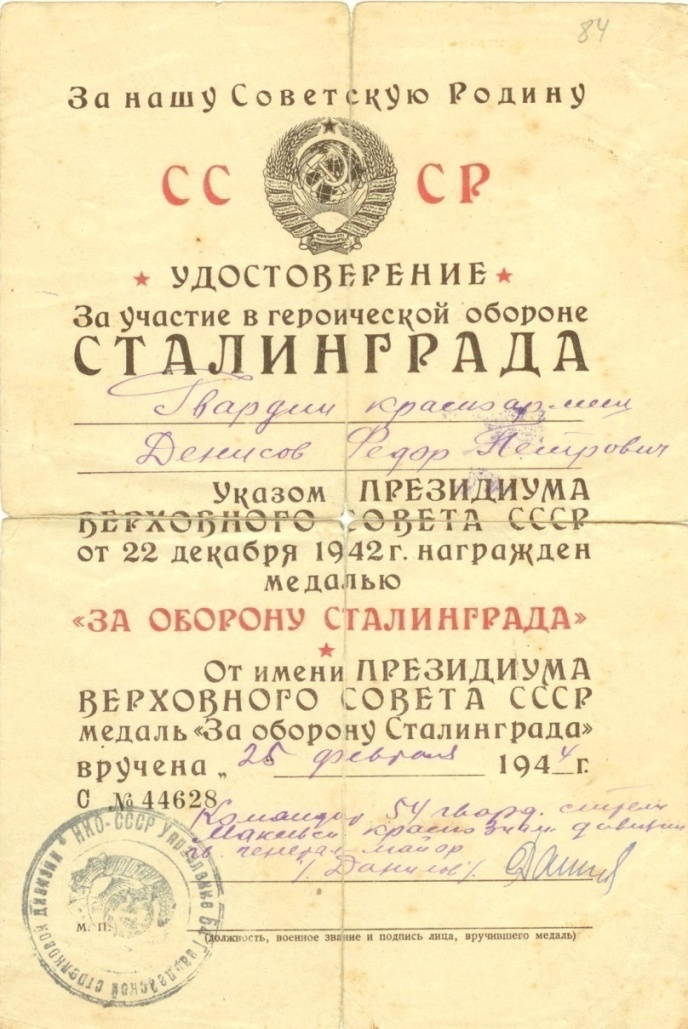 84
За нашу Советскую Родину
СС СР
УДОСТОВЕРЕНИЕ
За участие в героической обороне
СТАЛИНГРАДА
Гвардии красноармеец
Денисов Федор Петрович
Указом ПРЕЗИДИУМА
ВЕРХОВНОГО СОВЕТА СССР
от 22 декабря 1942 г. награжден
медалью
«ЗА ОБОРОНУ СТАЛИНГРАДА»
От имени ПРЕЗИДИУМА
ВЕРХОВНОГО СОВЕТА СССР
медаль «За оборону Сталинграда»
вручена „25 февраля 1944 г.
С № 44628
Командир 54 гвард. стрелк
Макеевск краснознам дивизии
гв генерал майор
/Данилов/.
М. П.
(должность, военное звание и подпись лица, вручившего медаль)
НКО-СССР Управление 54 Гвардейской стрелковой дивизии